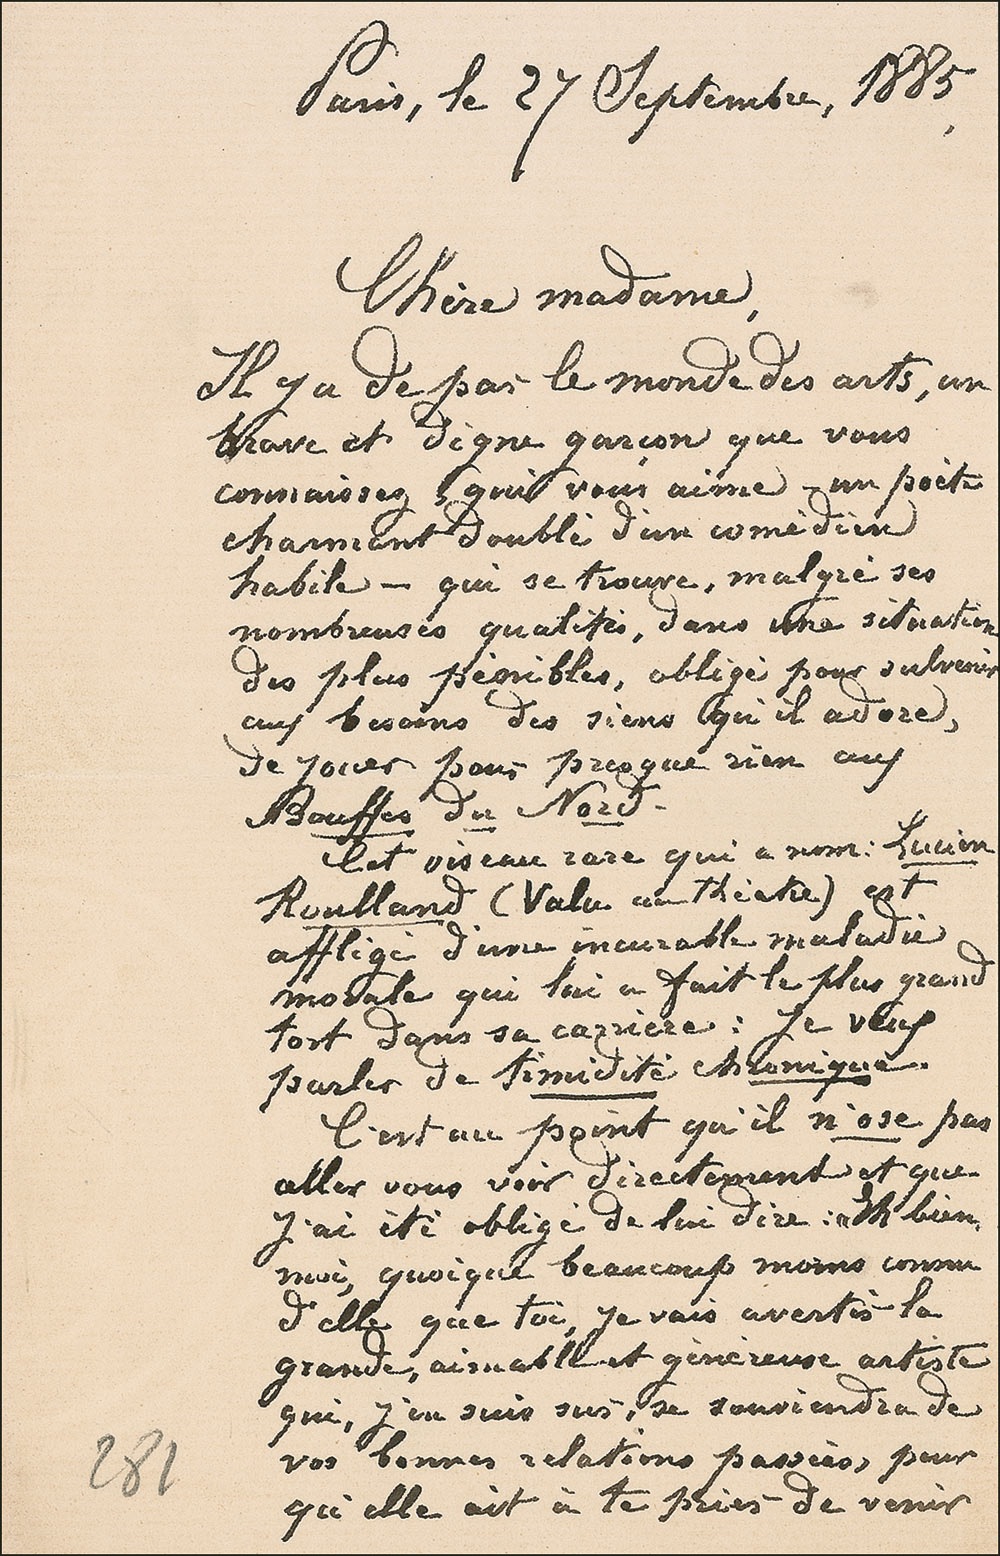 Paris, le 27 Septembre, 1885,
Chère madame,
Il y a de par le monde des arts, un
brave et digne garçon que vous
connaissez, qui vous aime - un poète
charmant doublé d'un comédien
habile - qui se trouve, malgré ses
nombreuses qualités, dans une situation
des plus pénibles, obligé pour subvenir
aux besoins des siens qu'il adore,
de jouer pour presque rien aux
Bouffes du Nord -
Cet oiseau rare qui a nom: Lucien
Roulland (Valu au théâtre) est
affligé d'une incurable maladie
morale qui lui a fait le plus grand
tort dans sa carrière: Je veux
parler de timidité chronique.
C'est au point qu'il n'ose pas
aller vous voir directement et que
j'ai été obligé de lui dire: "Eh bien,
moi, quoique beaucoup moins connu
d'elle que toi, je vais avertir la
grande, aimable et généreuse artiste
qui, j'en suis sûr, se souviendra de
vos bonnes relations passées, pour
qu'elle ait à te prier de venir
281